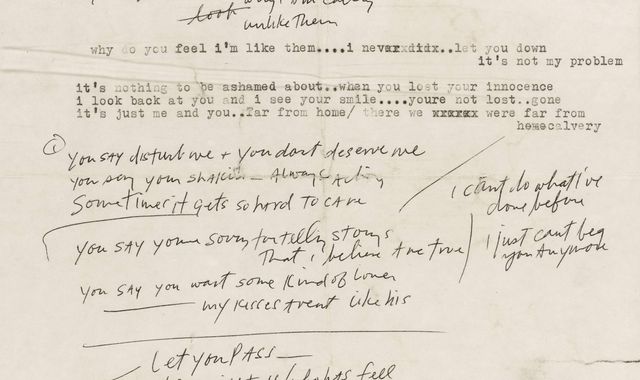 look
unlike Them
why do you feel i'm like them....i nevarxdidx..let you down
it's not my problem
it's nothing to be ashamed about..when you lost your innocence
i look back at you and i see your smile....youre not lost..gone
it's just me and you..far from home/ there we xxxxxx were far from
homecalvery
① You SAY disturb me + you dont deserve me
you say your - Always
Sometimes it gets so hard TO CARE
i cant do what i've
done before
You SAY youre sorry for telling storys
That i believe are true
i just cant beg
you Anymore
You SAY you want some Kind of Lover
my kisses arent like his
Let you PASS —
fell